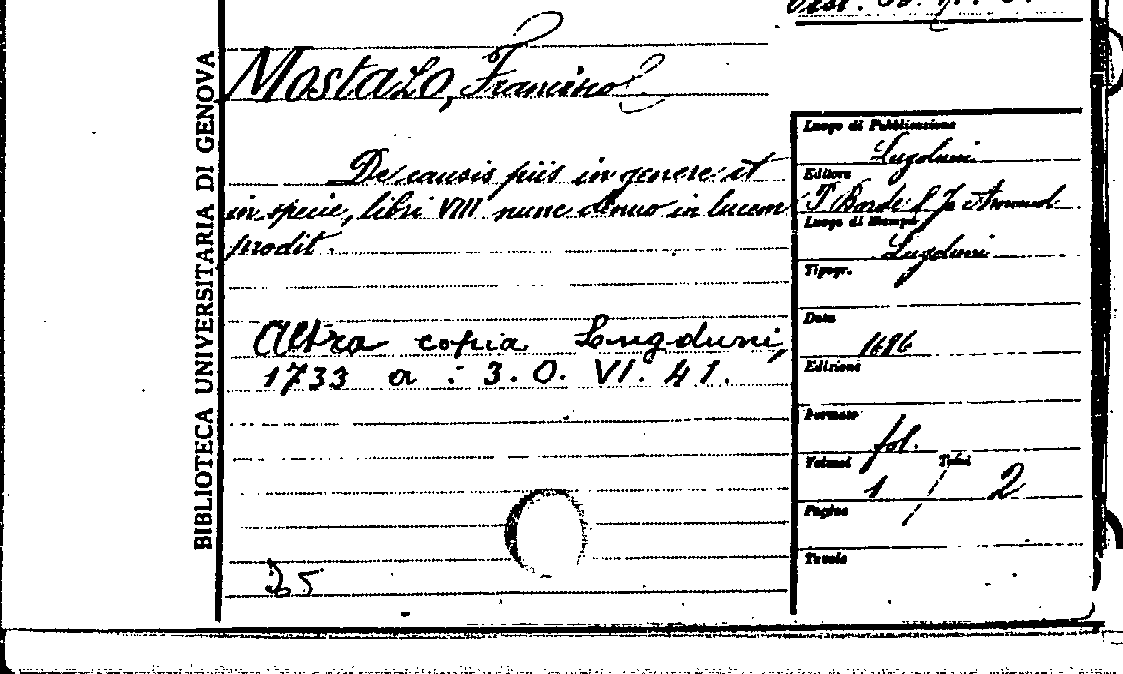 BIBLIOTECA UNIVERSITARIA DI GENOVA
Mostazo, Francisco
De causis piis in genere et
in specie, libri VIII nunc denuo in lucem
prodit.
Altra copia Lugduni,
1733 a : 3. O. VI. 41.
Luogo di Pubblicazione
Lugduni
Editore
P. Borde & Jo Arnaud.
Luogo di Stampa
Lugduni
Tipogr.
Data
1686
Edizioni
Formato
fol.
Volumi Tomi
1 / 2
Pagine
Tavole